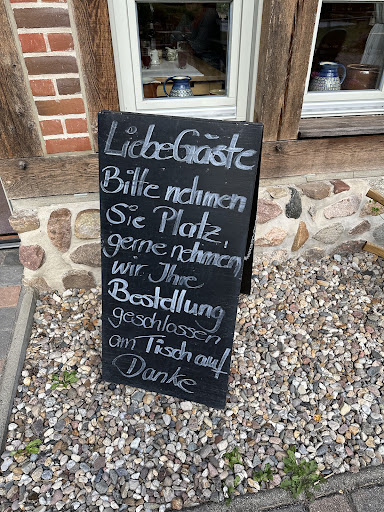 Liebe Gäste
Bitte nehmen
Sie Platz,
gerne nehmen
wir Ihre
Bestellung
geschlossen
am Tisch auf
Danke